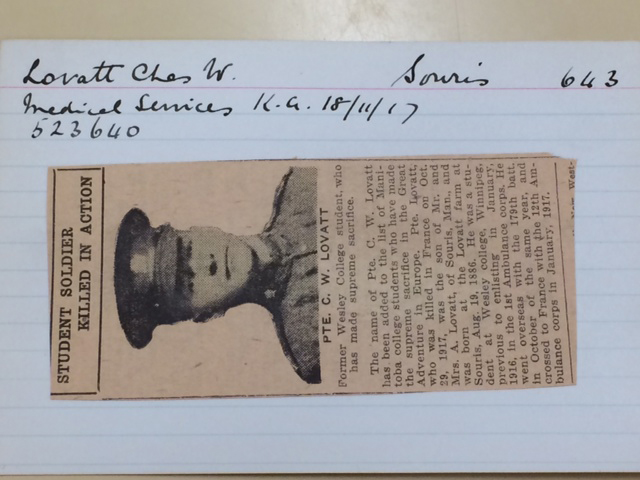 Lovatt Chas W. Souris 643
Medical Services K.A. 18/11/17
523640
STUDENT SOLDIER
KILLED IN ACTION
PTE. C. W. LOVATT
Former Wesley College student, who
has made supreme sacrifice.
The name of Pte. C. W. Lovatt
has been added to the list of Mani-
toba college students who have made
the supreme sacrifice in the Great
Adventure in Europe. Pte. Lovatt,
who was killed in France on Oct.
29, 1917, was the son of Mr. and
Mrs. A. Lovatt, of Souris, Man., and
was born at the Lovatt farm at
Souris, Aug. 19, 1886. He was a stu-
dent at Wesley college, Winnipeg,
previous to enlisting in January,
1916, in the 1st Ambulance corps. He
went overseas with the 179th batt.
in October of the same year, and
crossed to France with the 12th Am-
bulance corps in January, 1917.